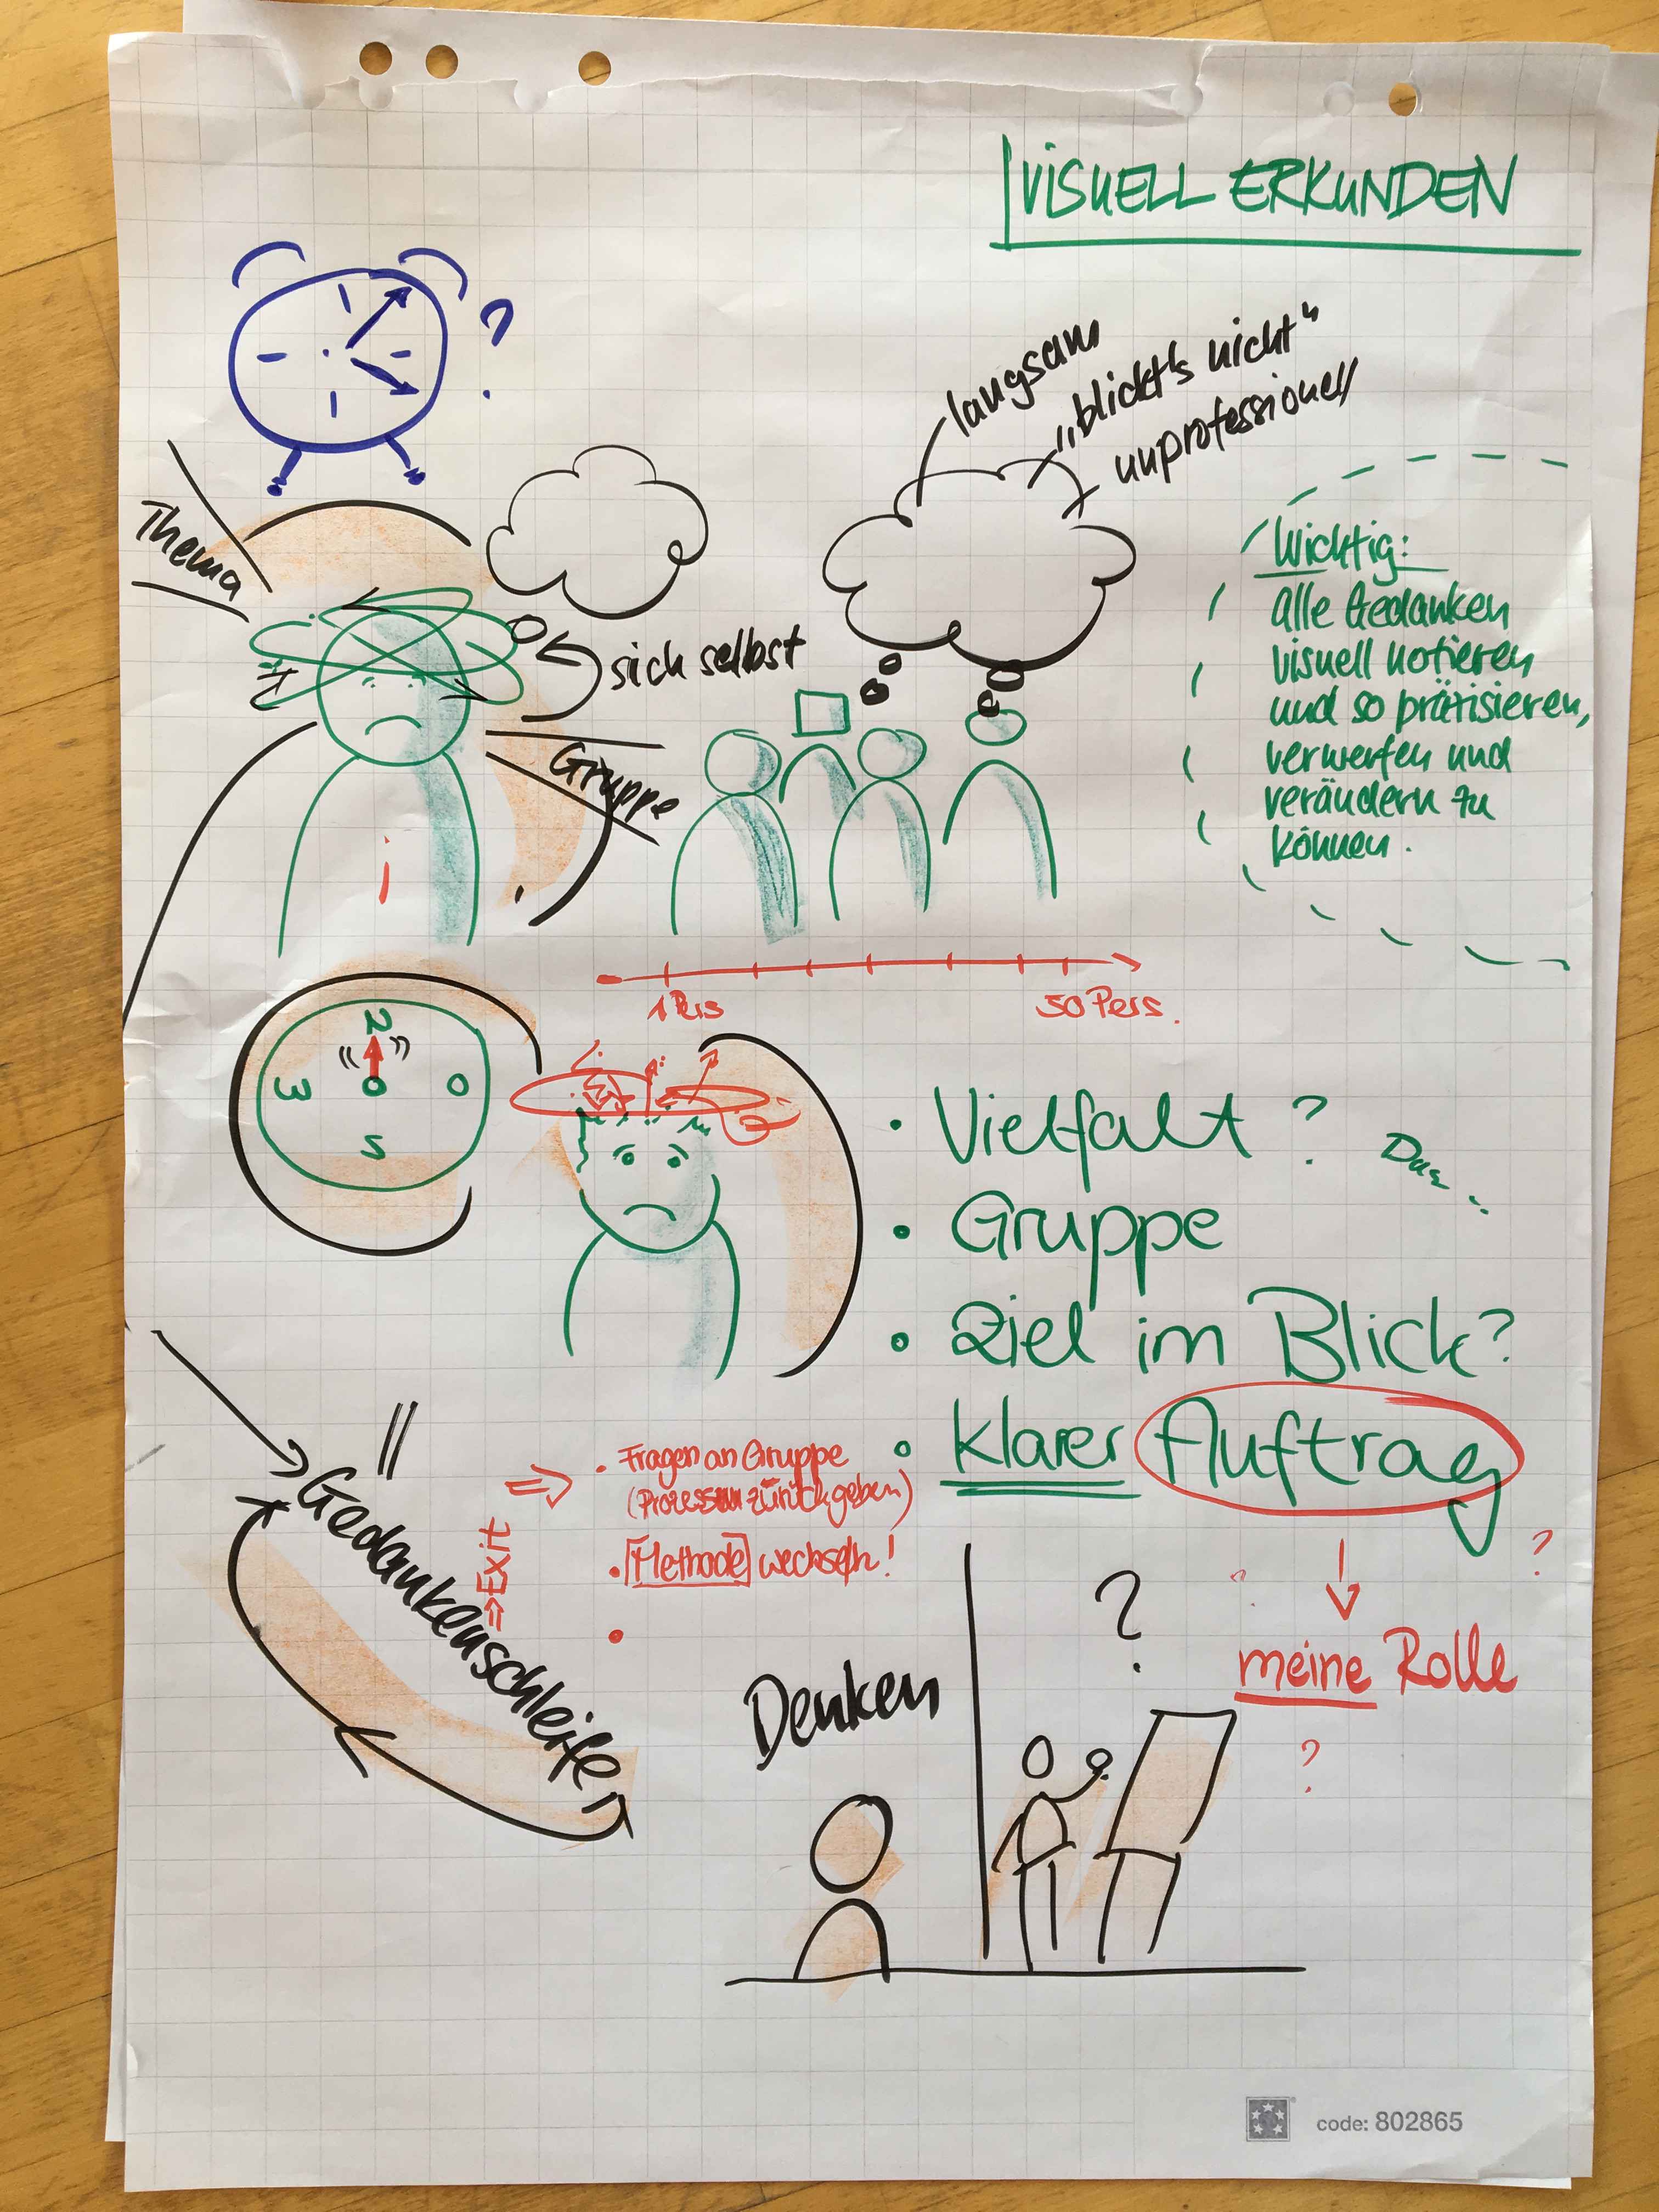 VISUELL ERKUNDEN
?
langsam
„blickt's nicht"
unprofessionell
Thema
sich selbst
Gruppe
Wichtig:
alle Gedanken
visuell notieren
und so präzisieren,
verwerfen und
verändern zu
können.
1 Pers
50 Pers.
N
W
O
S
• Vielfalt ?
• Gruppe
• Ziel im Blick?
• Klarer Auftrag
Gedankenschleife
⇒ Exit
⇒ • Fragen an Gruppe
(Prozess zurückgeben)
• Methode wechseln!
•
?
meine Rolle
?
Denken
?
code: 802865